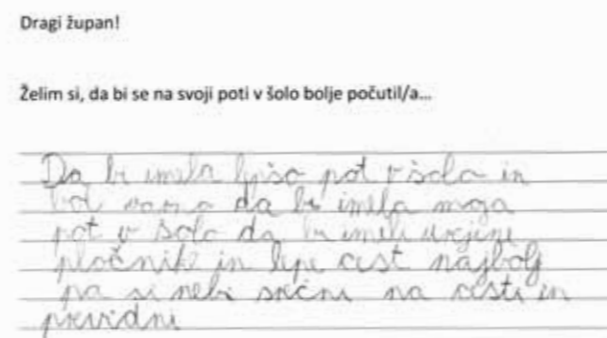 Dragi župan!
Želim si, da bi se na svoji poti v šolo bolje počutil/a...
Da bi imela lpšo pot v šola in
bol varna da bi imela moja
pot v šola da bi imeli
pločnik in lepe cist najbolj
pa si nebi na cisti in
previdni